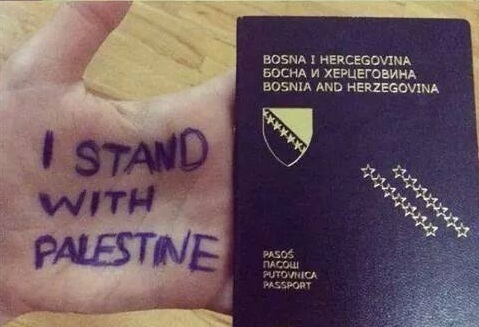 I STAND
WITH
PALESTINE
BOSNA I HERCEGOVINA
БОСНА И ХЕРЦЕГОВИНА
BOSNIA AND HERZEGOVINA
PASOŠ
ПАСОШ
PUTOVNICA
PASSPORT